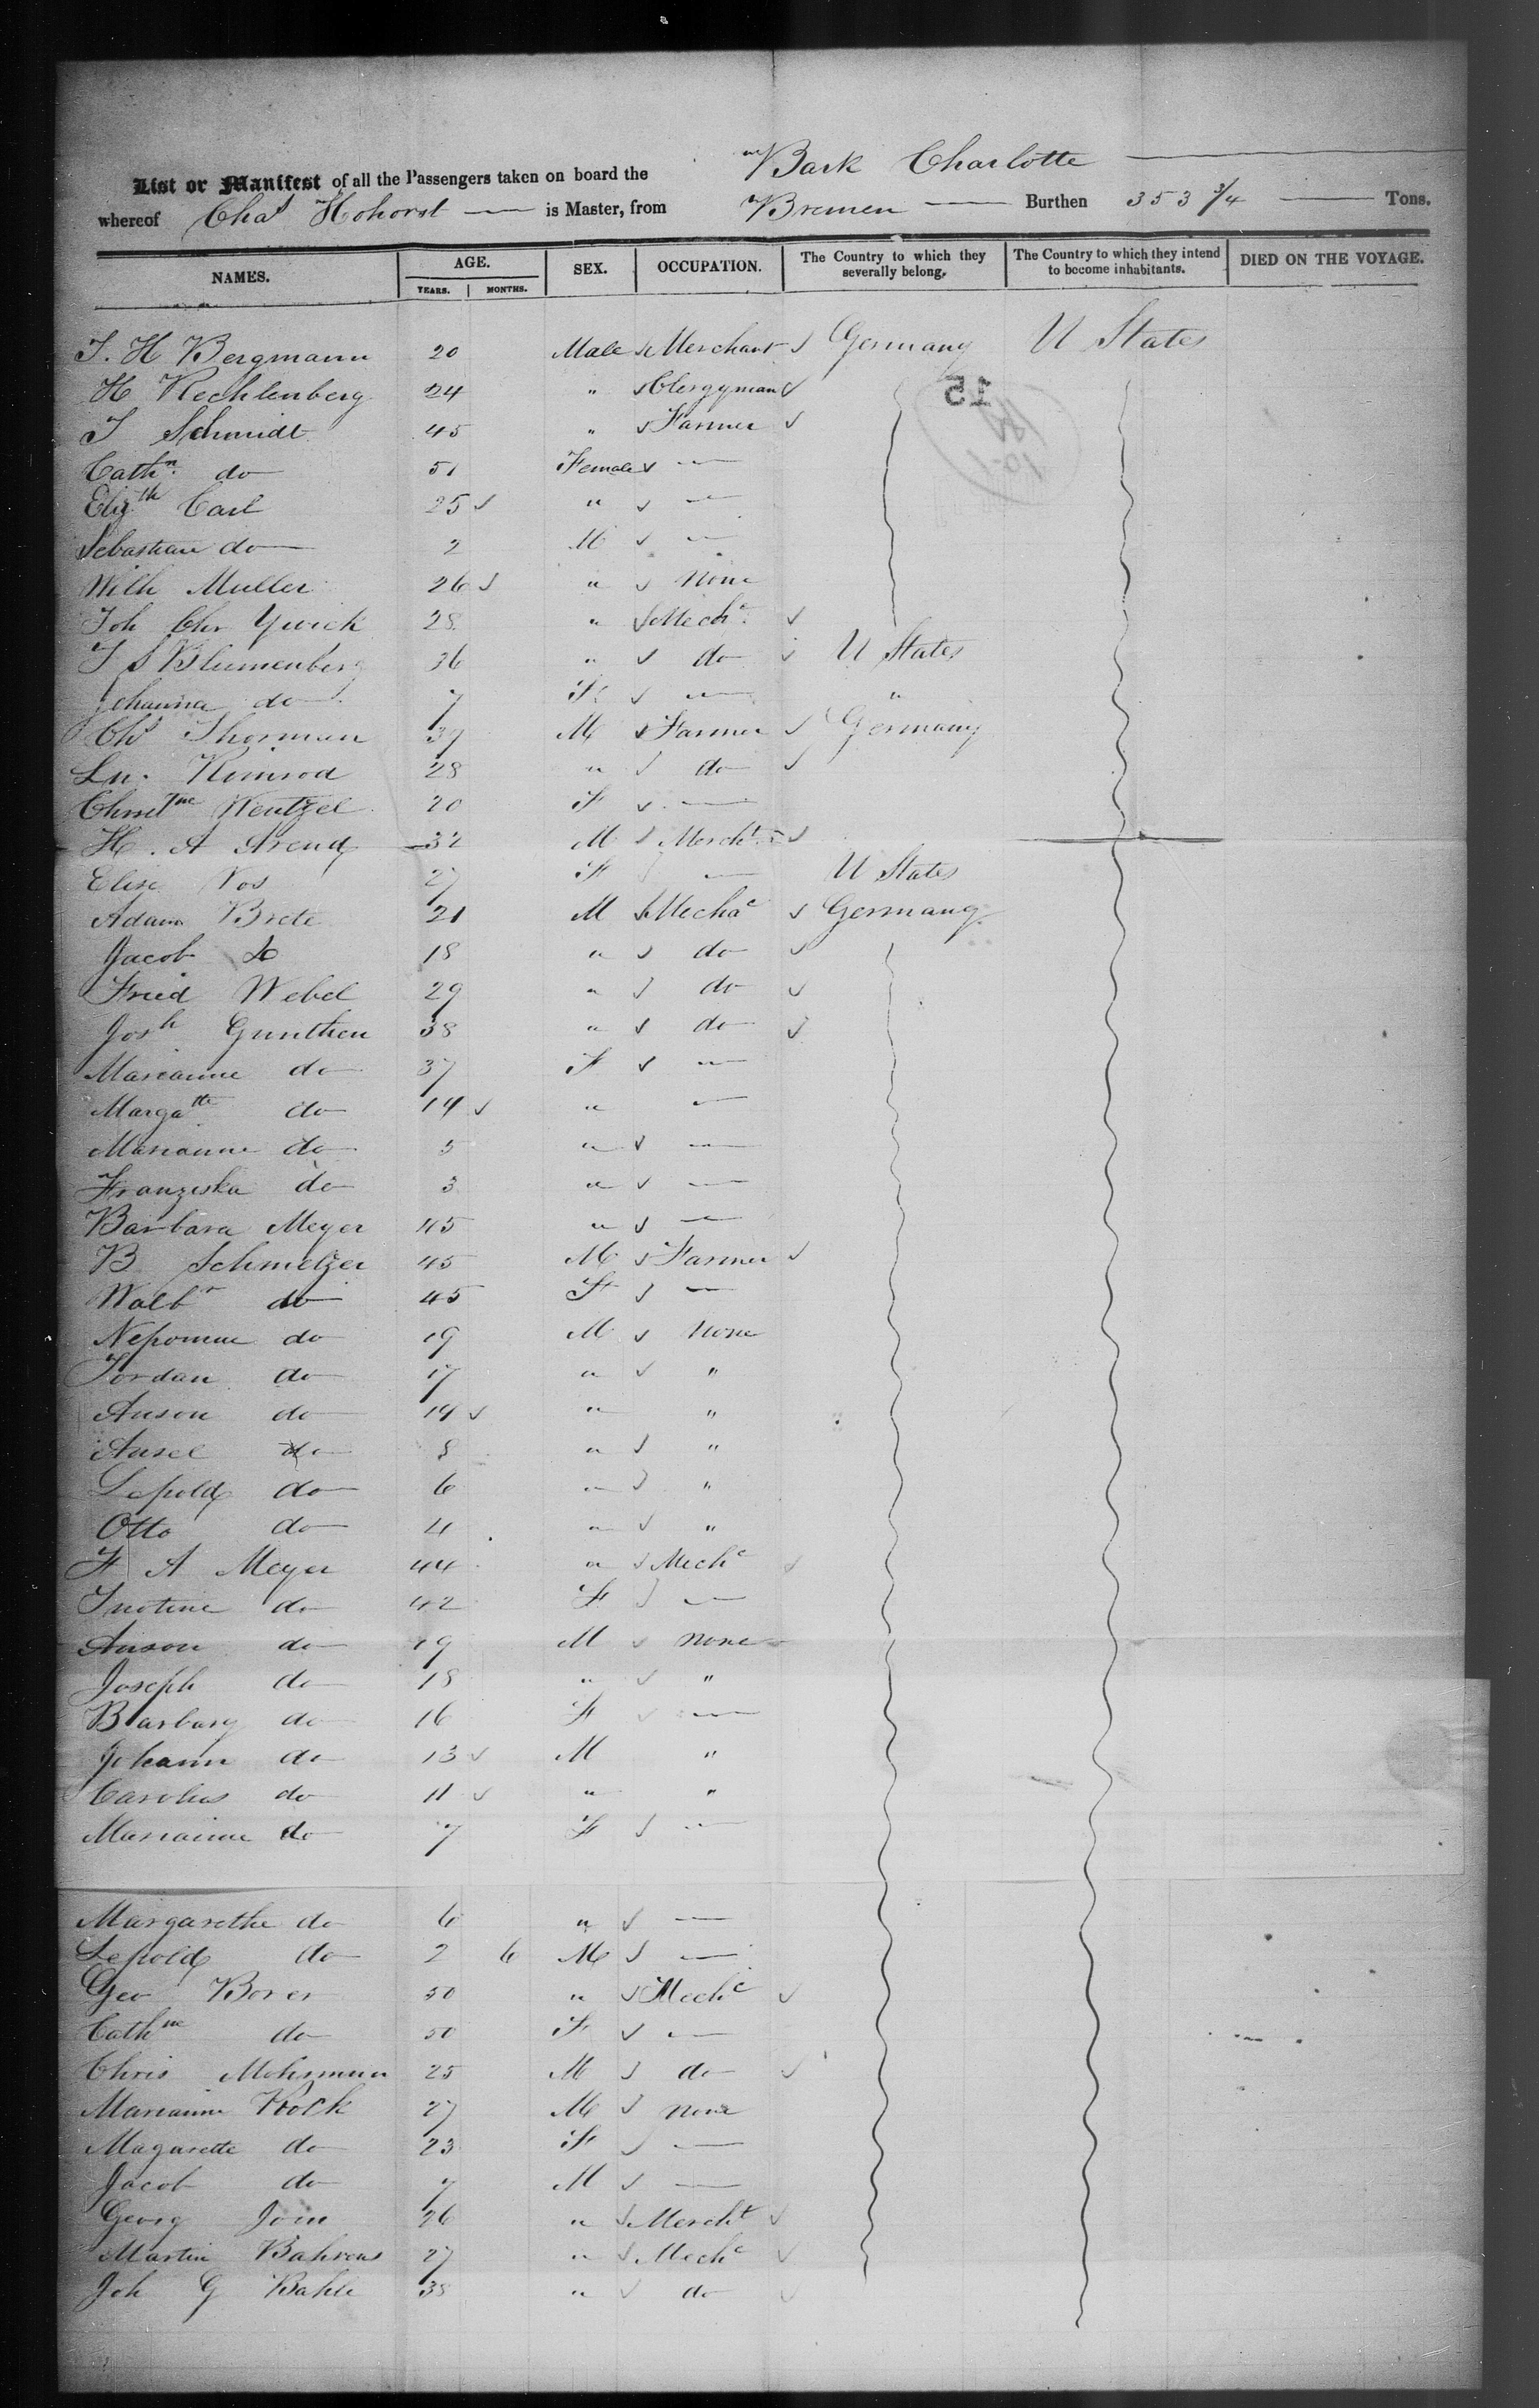 List or Manifest of all the Passengers taken on board the Bark Charlotte
whereof Chas Hohorst is Master, from Bremen Burthen 353 3/4 Tons.
NAMES. AGE. YEARS. MONTHS. SEX. OCCUPATION. The Country to which they severally belong. The Country to which they intend to become inhabitants. DIED ON THE VOYAGE.
J. H Bergmann 20 Male Merchant Germany U States
H Rechlenberg 24 " Clergyman
15
J Schmidt 45 " Farmer
Cathn. do 51 Female —
Elizth Carl 25 " —
Sebastian do 2 M —
Wilh Muller 26 " None
Joh Chr 28 " Mechc
J S Blumenberg 36 " do U States
Johanna do 7 F — "
Chs Thorman 37 M Farmer Germany
Ln. Rimrod 28 " do
Wentzel 20 F —
H. A Arend 32 M Mercht
Elise Vos 27 F — U States
Adam Brete 21 M Mechac Germany
Jacob do 18 " do
Fried Webel 29 " do
Josh Gunthen 38 " do
Marianne do 37 F —
Margatte do 14 " —
Marianne do 5 " —
Franziska do 3 " —
Barbara Meyer 45 " —
B Schmelzer 45 M Farmer
Walbr do 45 F —
Nepomuc do 19 M None
Jordan do 17 " "
Anson do 14 " "
Ansel do 8 " "
Lepold do 6 " "
Otto do 4 " "
F A Meyer 44 " Mechc
do 42 F —
Anson do 19 M none
Joseph do 18 " "
Barbary do 16 F —
Johann do 13 M "
Carolus do 11 " "
Marianne do 7 F —
Margarethe do 6 " —
Lepold do 2 6 M —
Geo Borer 50 " Mechc
Cathne do 50 F —
Chris Mohrmann 25 M do
Marianne Kock 27 M none
Magarette do 23 F —
Jacob do 7 M —
Georg Join 26 " Mercht
Martin Bahrens 27 " Mechc
Joh G Bahle 38 " do